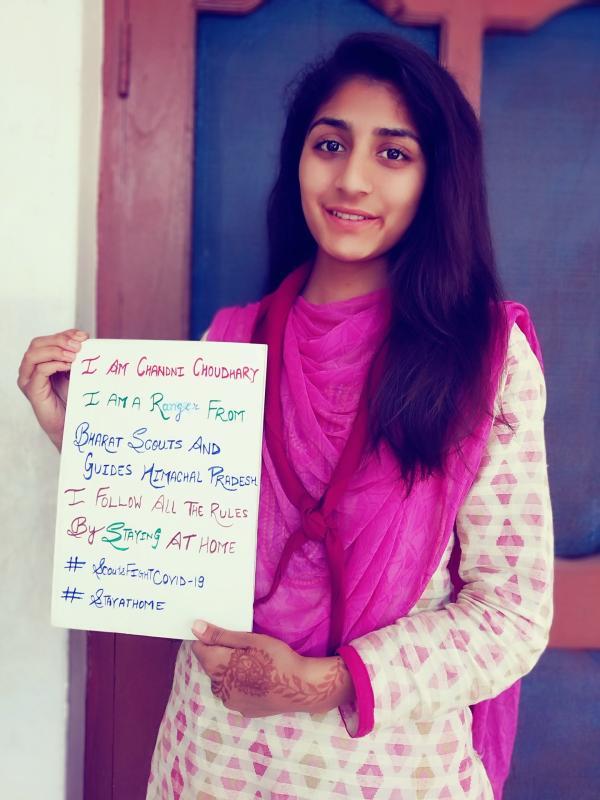 I AM CHANDNI CHOUDHARY
I AM A Ranger FROM
BHARAT SCOUTS AND
GUIDES HIMACHAL PRADESH
I FOLLOW ALL THE RULES
By STAYING AT HOME
# SCOUTSFIGHTCOVID-19
# STAYATHOME